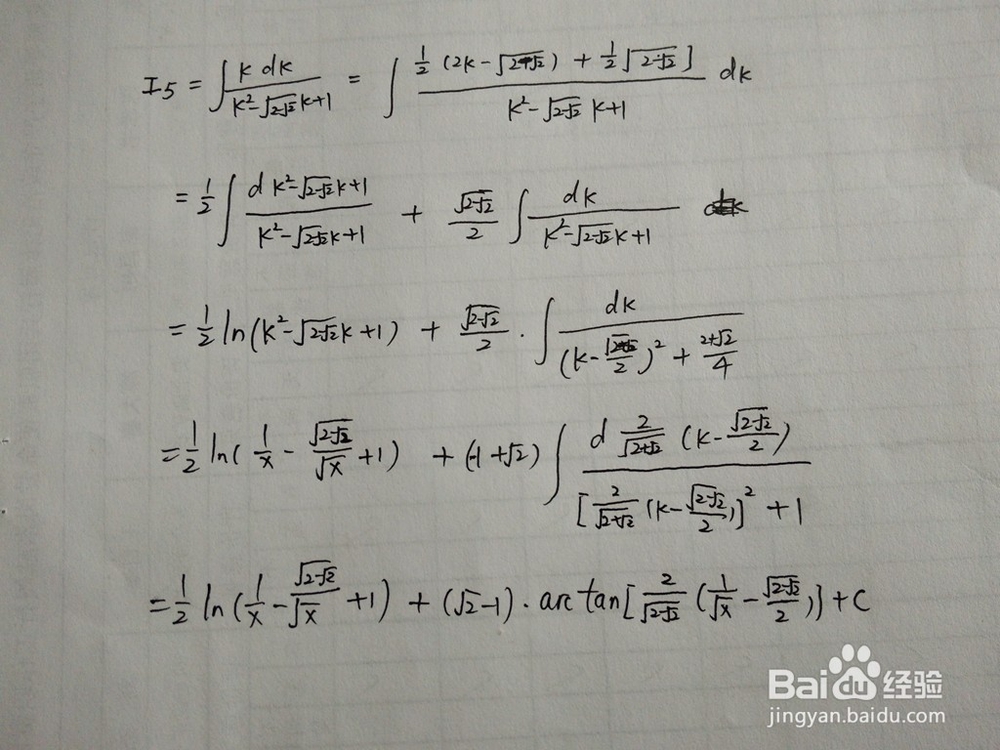 I5 = ∫ K dK / (K²-√(2-√2)K+1) = ∫ [½(2K-√(2-√2)) + ½√(2-√2)] / (K²-√(2-√2)K+1) dK
= ½∫ d K²-√(2-√2)K+1 / (K²-√(2-√2)K+1) + √(2-√2)/2 ∫ dK / (K²-√(2-√2)K+1)
= ½ ln(K²-√(2-√2)K+1) + √(2-√2)/2 · ∫ dK / ((K-√(2-√2)/2)² + (2+√2)/4)
= ½ ln(1/x - √(2-√2)/√x + 1) + (-1+√2) ∫ d 2/√(2+√2) (K-√(2-√2)/2) / ([2/√(2+√2) (K-√(2-√2)/2)]² + 1)
= ½ ln(1/x - √(2-√2)/√x + 1) + (√2-1) · arc tan[2/√(2-√2) (1/√x - √(2-√2)/2)] + C
Baidu 经验
jingyan.baidu.com